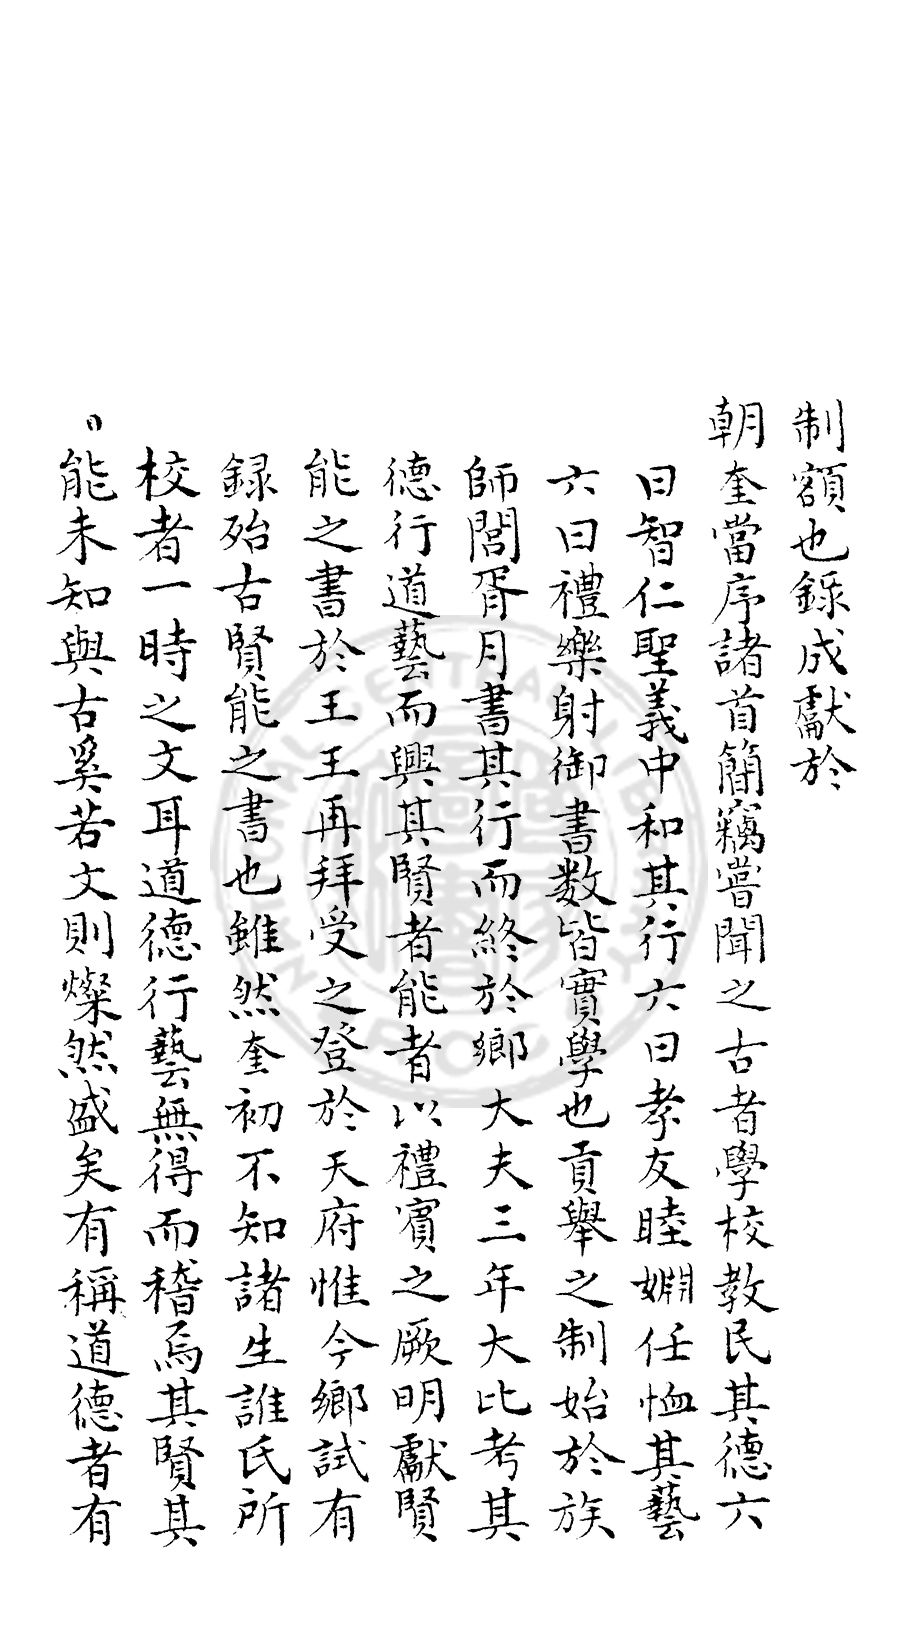 制額也錄成獻於
朝奎當序諸首簡竊嘗聞之古者學校教民其德六
曰智仁聖義中和其行六曰孝友睦婣任恤其藝
六曰禮樂射御書数皆實學也貢舉之制始於族
師閭胥月書其行而終於鄉大夫三年大比考其
德行道藝而興其賢者能者以禮賓之厥明獻賢
能之書於王王再拜受之登於天府惟今鄉試有
録殆古賢能之書也雖然奎初不知諸生誰氏所
校者一時之文耳道德行藝無得而稽焉其賢其
能未知與古奚若文則燦然盛矣有稱道德者有